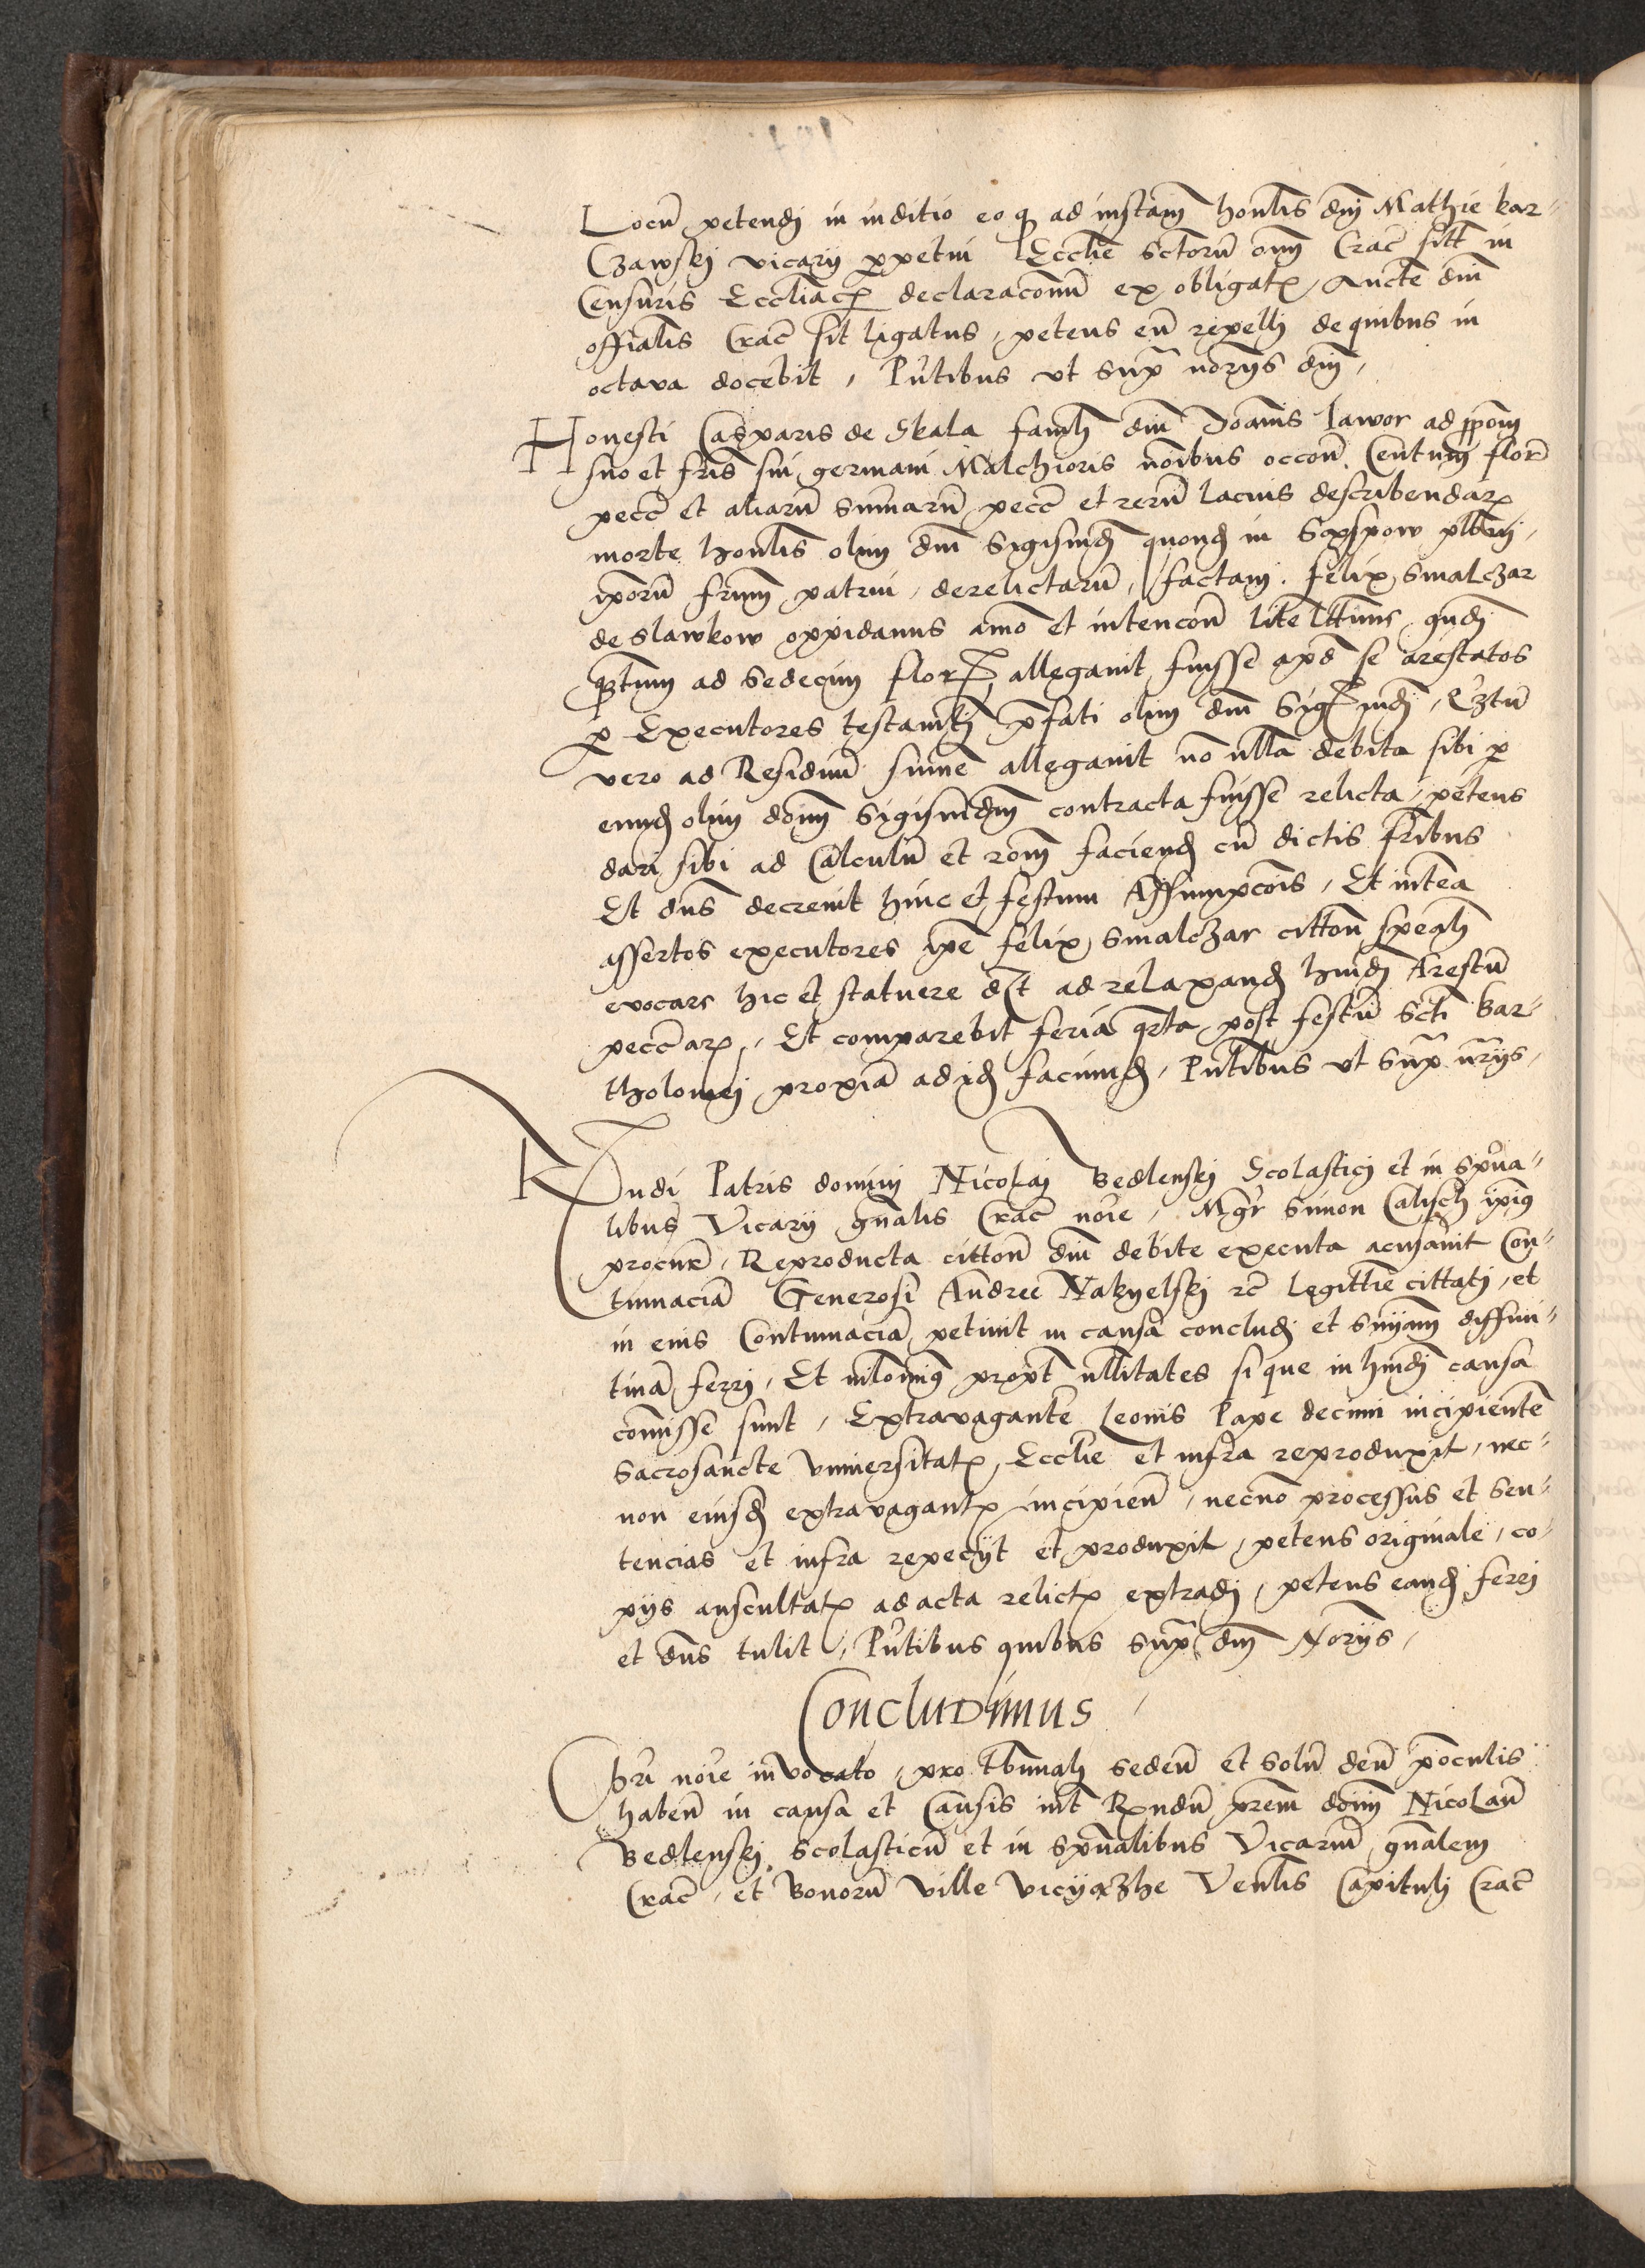 Locu͂ petendj in inditio eo q ad instam̄ honlis dnj Mathie kar-
Czawskj vicarij ppetui Ecclie sctoru͂ om̄ Crac sitt in
Censuris Eccliac declaraconu͂ ex obligat Aucte dni
offialis Crac sit ligatus, petens eu͂ repellj de quibus in
octava docebit, Pntibus vt sup norijs dnj,
Honesti Casparis de Skala famli dni Joanis Iawor ad ppom̄
suo et fris sui germani Malchioris noibus occon Centum flor
pecc et aliaru͂ summaru͂ pecc et reru͂ lacius describendar
morte honlis olim dni Sigismdj quond in Sospow plbnj,
iporu͂ frum patrui, derelictaru͂, factam. felix Smalczar
de Slawkow oppidanus amo et intencon lite lttimu͂s gndj
qtum ad Sedecim flor allegauit fuisse apd se arestatos
p Executores testamtj pfati olim dni Sigmdj, Qztu͂
vero ad Residuu͂ sume allegauit no nlla debita sibi p
eund olim dom̄ Sigismdm contracta fuisse relicta, petens
dari sibi ad Calculu͂ et rom̄ faciend cu͂ dictis fribus
Et dns decreuit hinc et festum Assumpcois, Et intea
assertos executores ipe felix Smalczar citton spealj
evocare hic et statuere dt ad relaxand hmdj Arestu͂
peccar, Et comparebit feria qrta post festu͂ Scti Bar-
tholomej proxia ad id faciend, Pntibus vt sup nrijs,
Rndi Patris dominj Nicolaj Bedlenskj Scolasticj et in spua-
libus Vicarij gnalis Crac noie, Mgr Simon Calisch ipius
procur, Reproducta citton dni debite executa acusauit Con-
tumacia͂ Generosi Andree Nakyelskj rc legittie cittatj, et
in eius Contumacia͂ petiuit in causa concludj et Snyam̄ diffini-
tiua͂ ferrj, Et nilominus propt nllitates si que in hmdj causa
comisse sunt, Extravagante Leonis Pape decimi incipiente
Sacrosancte Vniuersitat Ecclie et infra reproduxit, nec-
non eiusd extravagant incipien, necno processus et Sen-
tencias et infra repecijt et produxit, petens originale, co-
pijs auscultat ad acta relict extradj, petens eand ferrj
et dns tulit, Pntibus quibus sup dnj Norijs,
Concludimus
Chri noie inuocato, pro tbunalj seden et solu͂ deu͂ p oculis
haben in causa et Causis int Rndu͂ prem dom̄ Nicolau͂
Bedlenskj Scolasticu͂ et in spualibus Vicariu͂ gnalem
Crac, et Bonoru͂ ville Vicijazhe Venlis Capitulj Crac